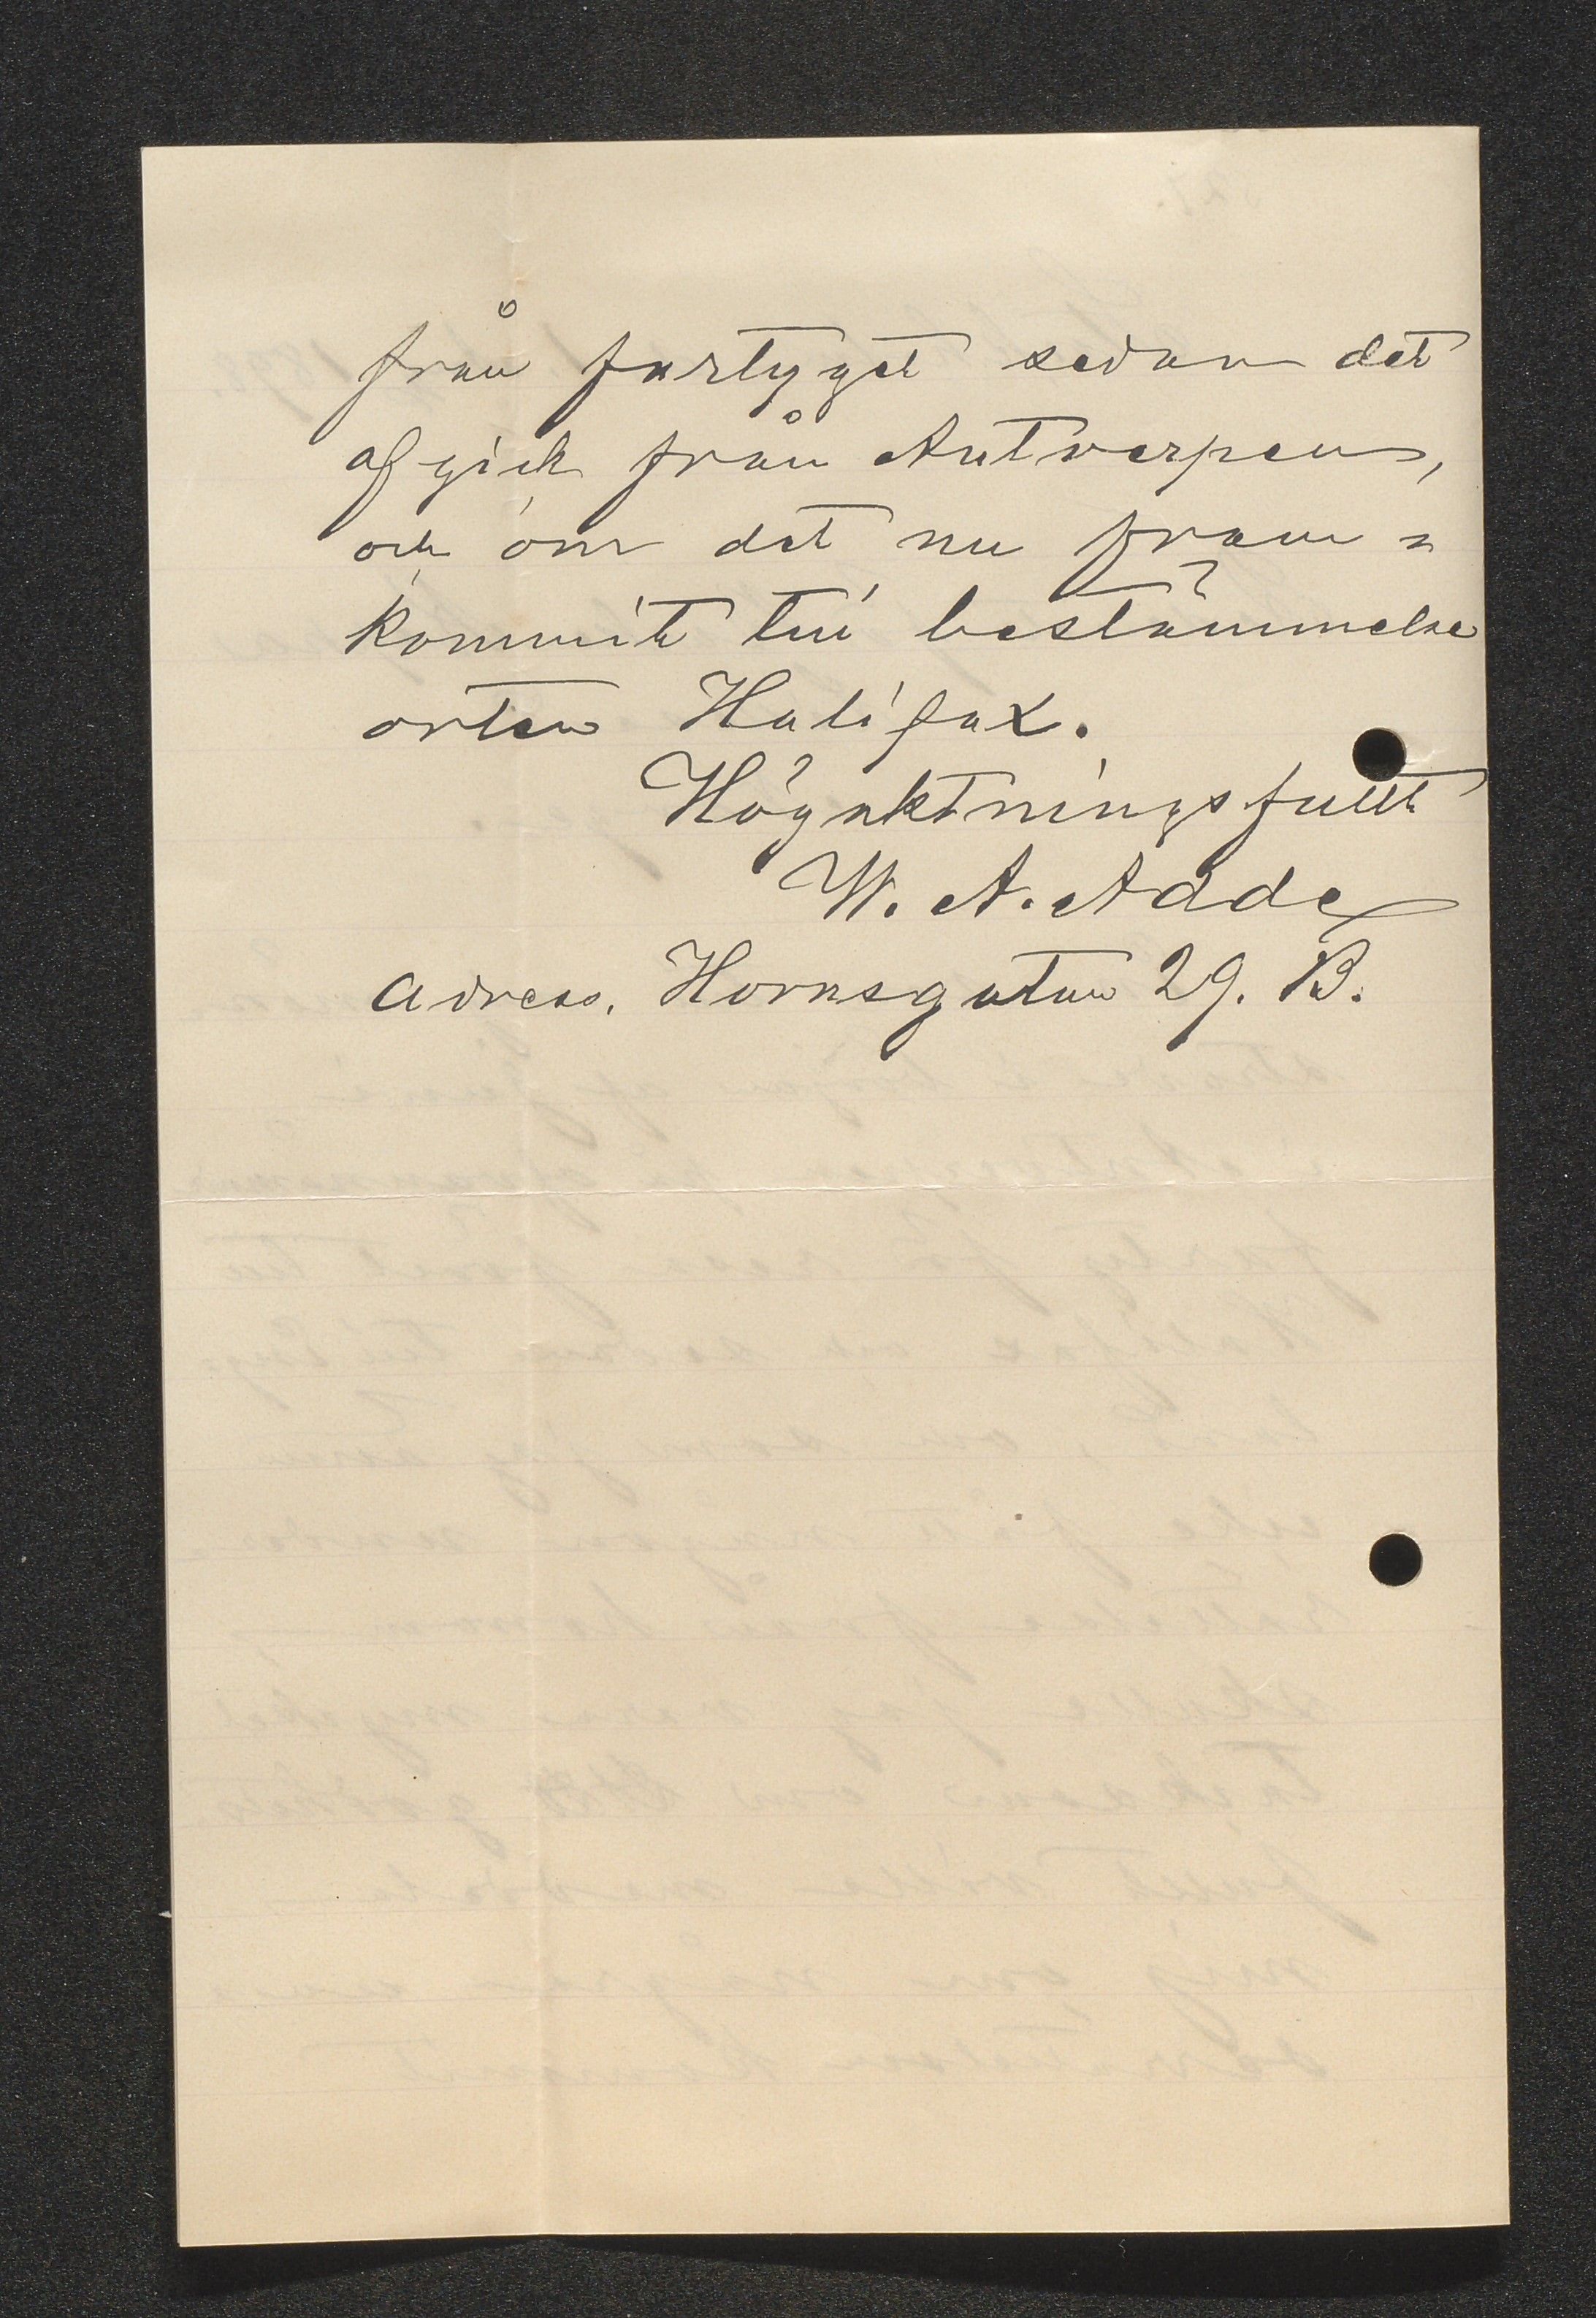 från fartyget sedan det
afgick från Antwerpen,
och om det nu fram=
kommit till bestämmelse
orten Halifax.
Högaktningsfullt
W. A. Adde
adress. Hornsgatan 29. B.